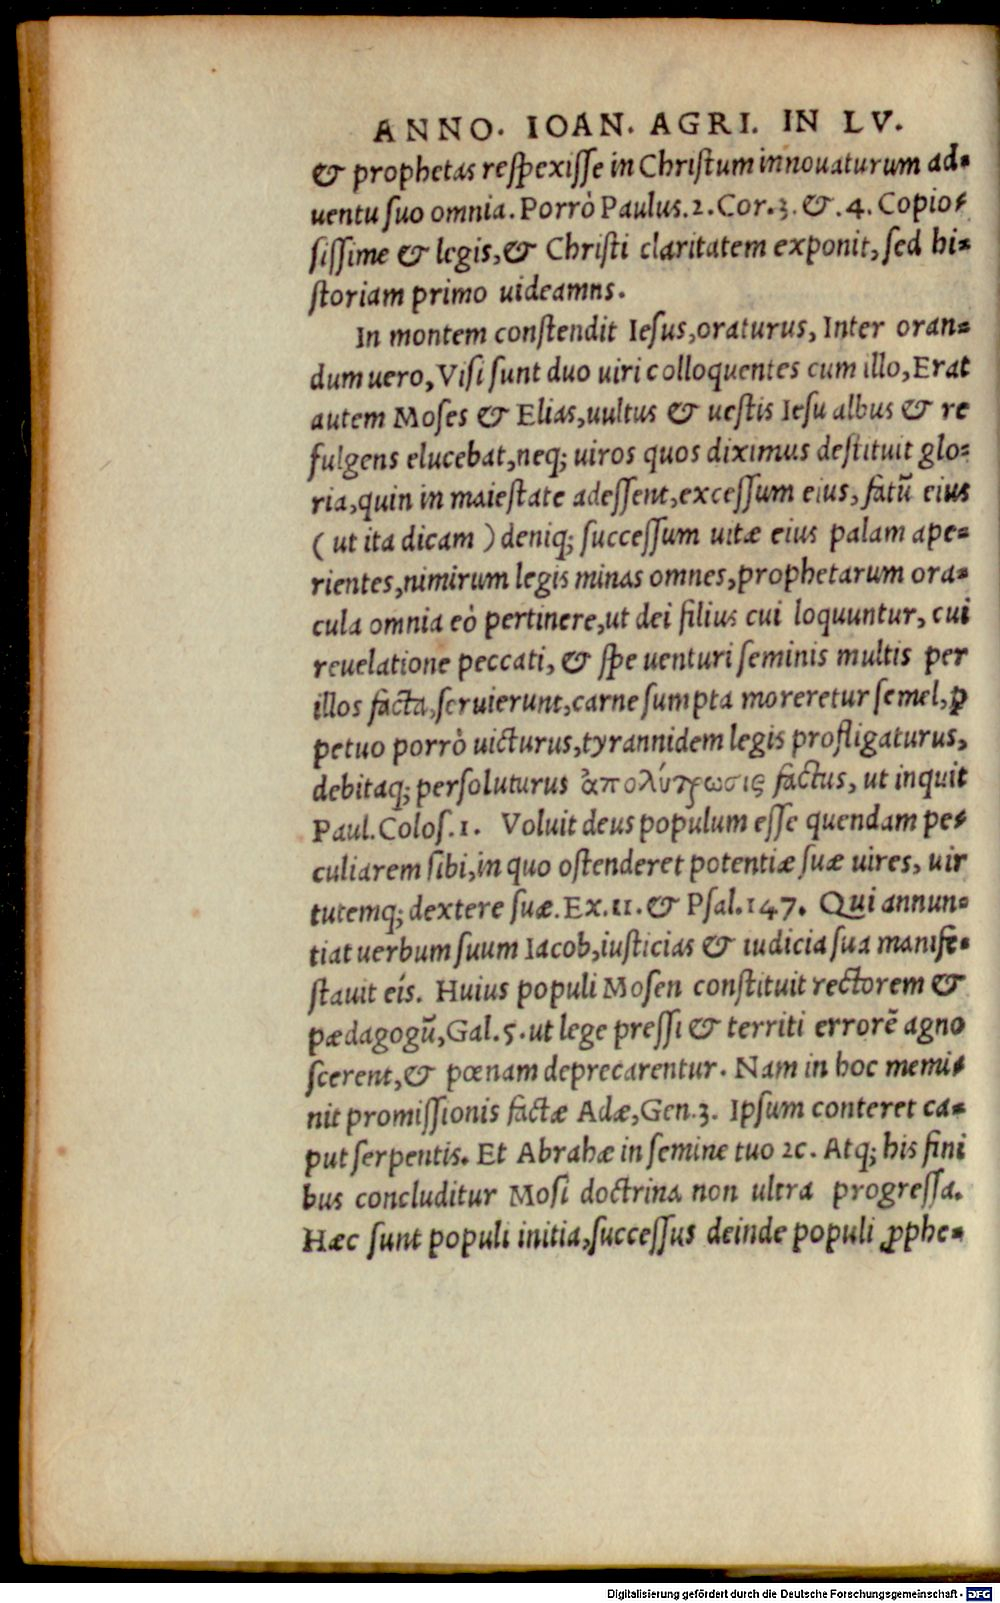 ANNO. IOAN. AGRI. IN LV.
& prophetas reſpexiſſe in Chriſtum innouaturum ad-
uentu ſuo omnia. Porrò Paulus. 2. Cor. 3. &. 4. Copio-
ſiſſime & legis, & Chriſti claritatem exponit, ſed hi-
ſtoriam primo uideamns.
In montem conſtendit Ieſus, oraturus, Inter oran-
dum uero, Viſi ſunt duo uiri colloquentes cum illo, Erat
autem Moſes & Elias, uultus & ueſtis Ieſu albus & re
fulgens elucebat, neq; uiros quos diximus deſtituit glo-
ria, quin in maieſtate adeſſent, exceſſum eius, fatū eius
( ut ita dicam ) deniq; ſucceſſum uitæ eius palam ape-
rientes, nimirum legis minas omnes, prophetarum ora-
cula omnia eò pertinere, ut dei filius cui loquuntur, cui
reuelatione peccati, & ſpe uenturi ſeminis multis per
illos facta, ſeruierunt, carne ſumpta moreretur ſemel, ꝑ
petuo porrò uicturus, tyrannidem legis profligaturus,
debitaq; perſoluturus ἀπολύτρωσις factus, ut inquit
Paul. Coloſ. 1. Voluit deus populum eſſe quendam pe-
culiarem ſibi, in quo oſtenderet potentiæ ſuæ uires, uir
tutemq; dextere ſuæ. Ex. 11. & Pſal. 147. Qui annun-
tiat uerbum ſuum Iacob, iuſticias & iudicia ſua manife-
ſtauit eis. Huius populi Moſen conſtituit rectorem &
pædagogū, Gal. 5. ut lege preſſi & territi errorē agno
ſcerent, & pœnam deprecarentur. Nam in hoc memi-
nit promiſſionis factæ Adæ, Gen. 3. Ipſum conteret ca-
put ſerpentis. Et Abrahæ in ſemine tuo ꝛc. Atq; his fini
bus concluditur Moſi doctrina non ultra progreſſa.
Hæc ſunt populi initia, ſucceſſus deinde populi ꝓphe-
Digitalisierung gefördert durch die Deutsche Forschungsgemeinschaft - DFG